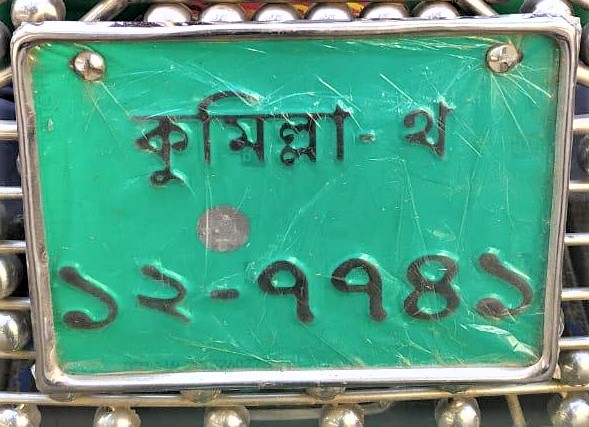 কুমিল্লা - থ
১২-৭৭৪১